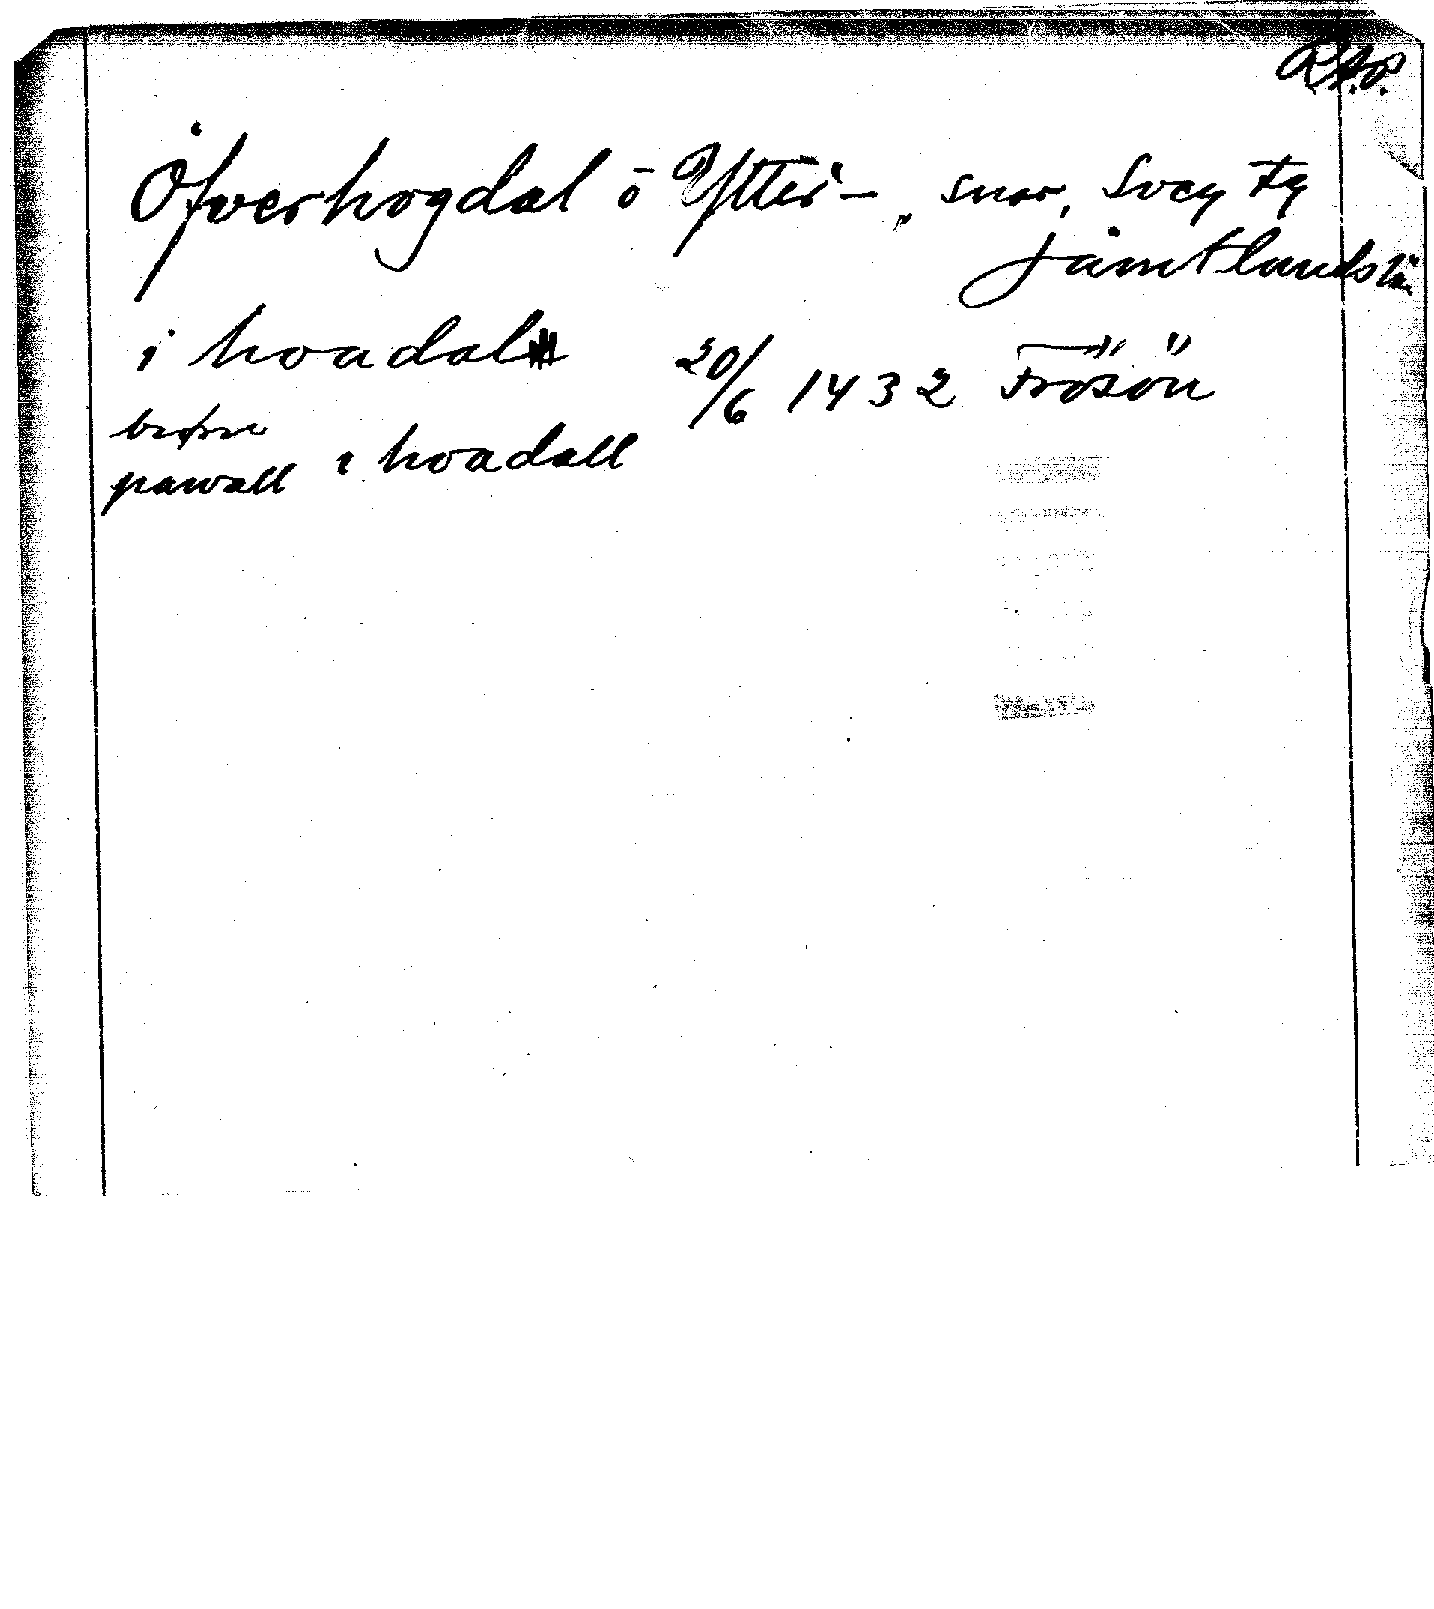 R.A.P.
Öfverhogdal ö Ytter-, snsr, Sveg Fg
Jämtlands län
i hoadal 20/6 1432 Frösön
biorn
pawall i hoadall